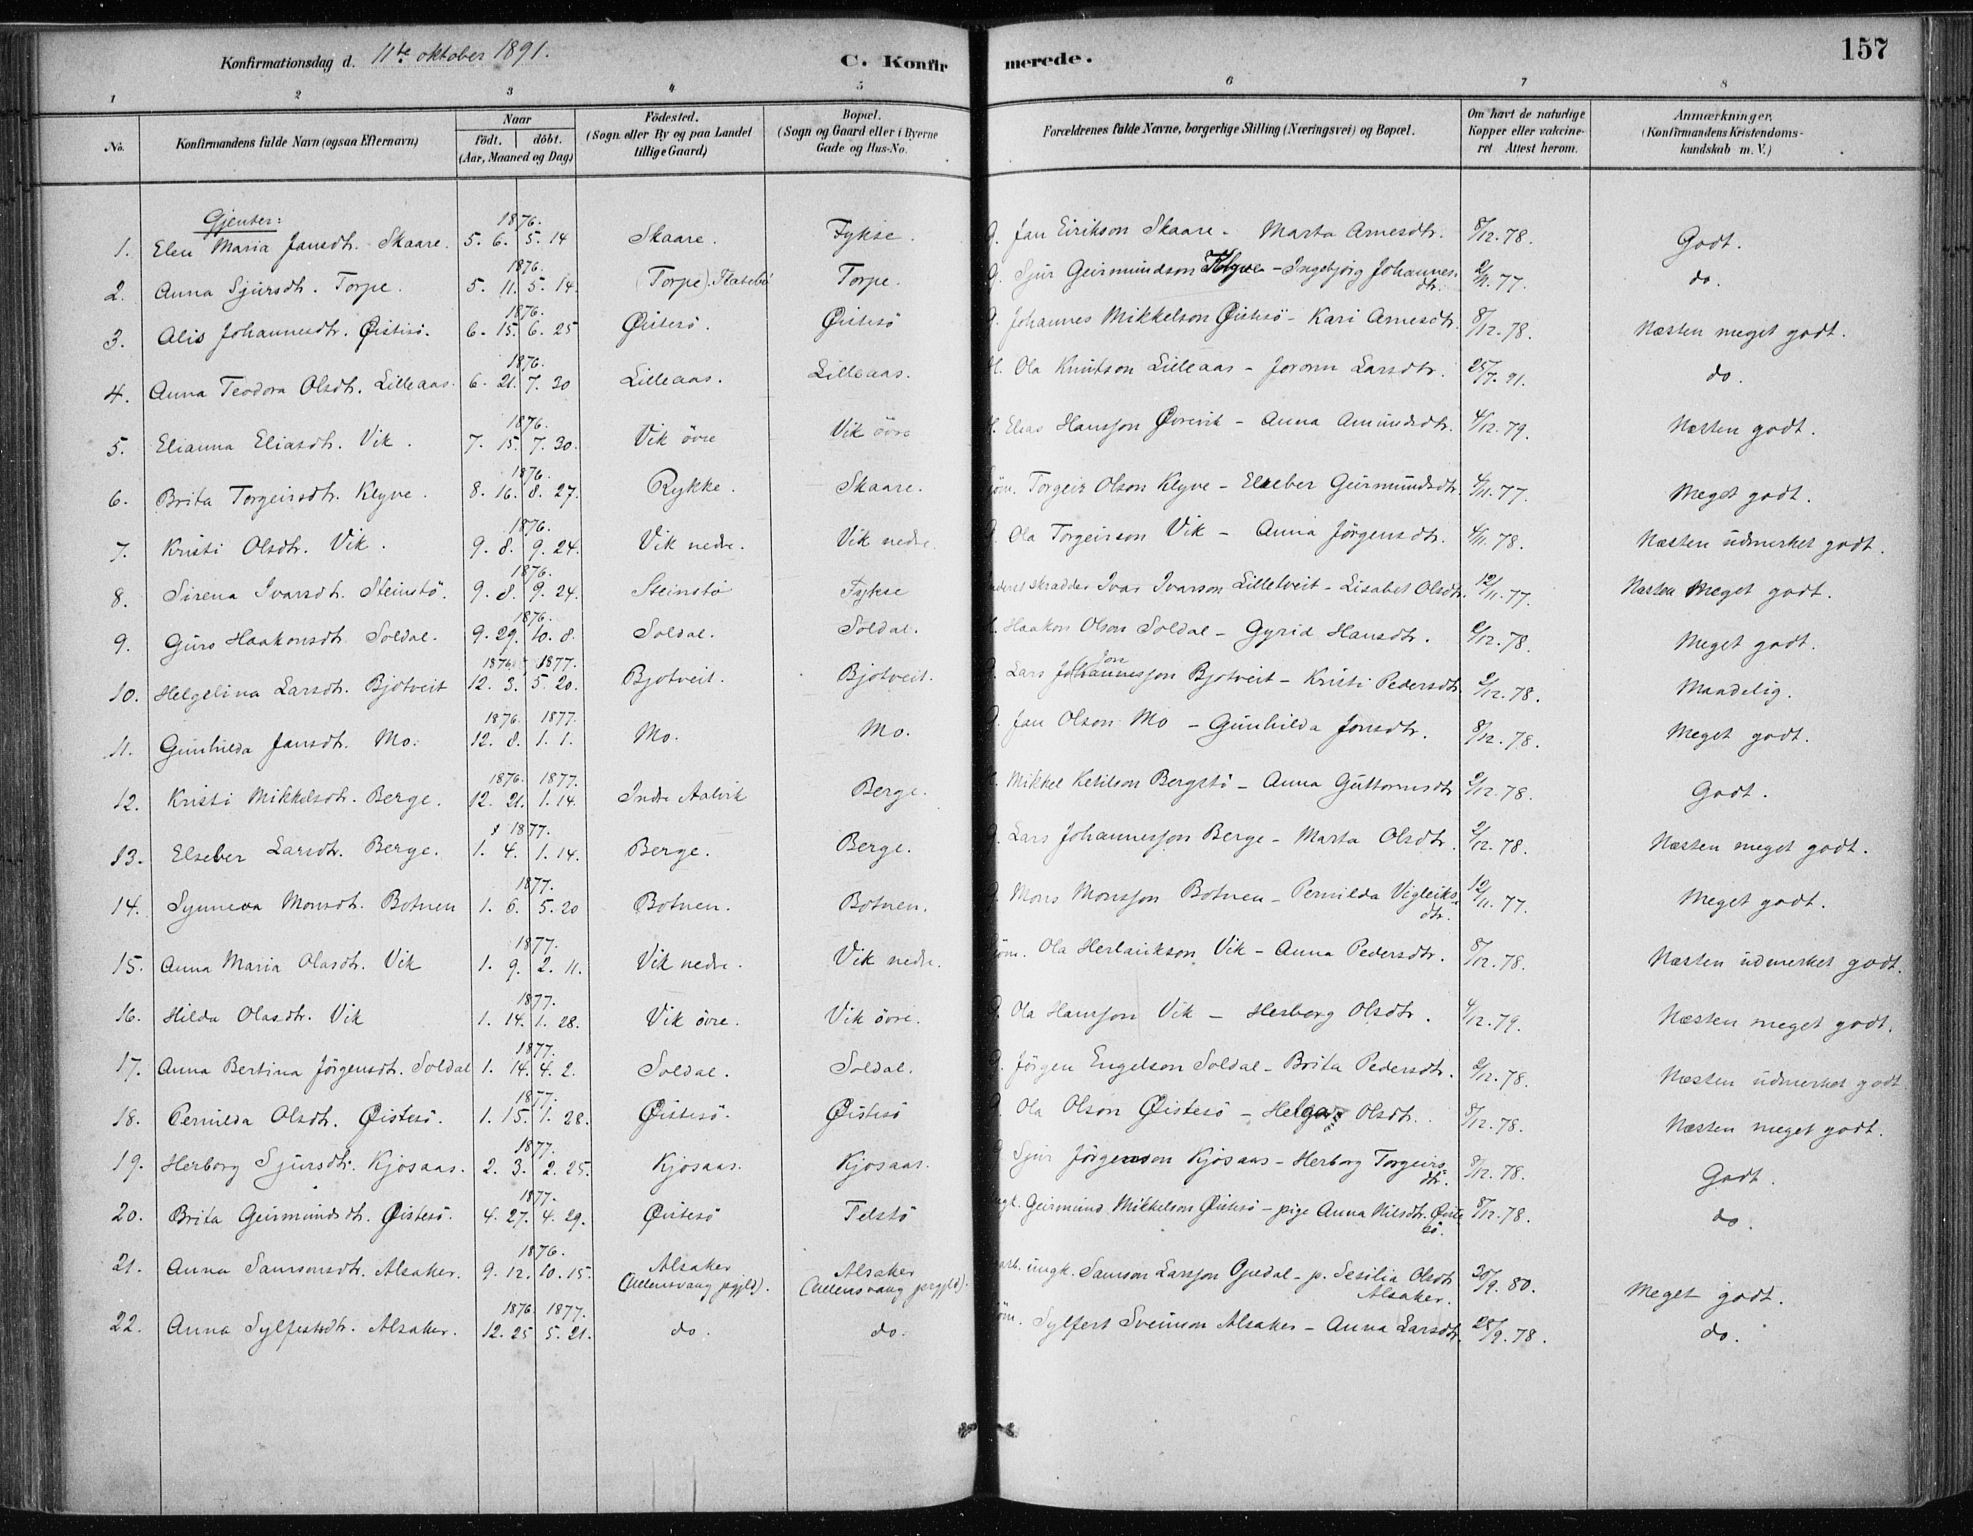 Konfirmationsdag d. 11te oktober 1891. C. Konfirmerede. 157
1 2 3 4 5 6 7 8
No. Konfirmandens fulde Navn (ogsaa Efternavn) Naar födt. döbt. (Aar, Maaned og Dag) Födested. (Sogn eller By og paa Landet tillige Gaard) Bopæl. (Sogn og Gaard eller i Byerne Gade og Hus-No. Forældrenes fulde Navne, borgerlige Stilling (Næringsvei) og Bopæl. Om havt de naturlige Kopper eller vakcineret Attest herom. Anmærkninger. (Konfirmandens Kristendomskundskab m. V.)
Gjenter:
1. Elen Maria Jansdtr. Skaare. 1876. 5. 6. 5. 14 Skaare. Fykse. G. Jan Eirikson Skaare - Marta Arnesdtr. 8/12. 78. Godt.
2. Anna Sjursdtr. Torpe. 1876. 5. 11. 5. 14. (Torpe) Torpe. G. Sjur Geirmundson Klyve - Ingebjörg Johannesdtr. 2/11. 77. do.
3. Alis Johannesdtr. Øistesö. 1876. 6. 15. 6. 25 Øistesö. Øistesö G. Johannes Mikkelson Øistesö - Kari Arnesdtr. 8/12. 78. Næsten meget godt.
4. Anna Teodora Olsdtr. Lilleaas. 1876. 6. 21. 7. 30 Lilleaas. Lilleaas. H. Ola Knutson Lilleaas - Joronn Larsdtr. 25/7. 91. do.
5. Elianna Eliasdtr. Vik. 1876. 7. 15. 7. 30. Vik övre Vik övre H. Elias Hansson Øvrevik - Anna Amundsdtr. 4/12. 79. Næsten godt.
6. Brita Torgeirsdtr. Klyve. 1876. 8. 16. 8. 27. Rykke. Skaare. Torgeir Olson Klyve - Elseber Geirmundsdtr. 4/11. 77. Meget godt.
7. Kristi Olsdtr. Vik. 1876. 9. 8. 9. 24. Vik nedre. Vik nedre. G. Ola Torgeirson Vik - Anna Jörgensdtr. 4/11. 78. Næsten udmerket godt.
8. Sirena Ivarsdtr. Steinstö. 1876. 9. 8. 9. 24. Steinstö Fykse skrædder Ivar Ivarson Lilletveit - Lisabet Olsdtr. 12/11. 77. Næsten Meget godt.
9. Guro Haakonsdtr. Soldal. 1876. 9. 29. 10. 8. Soldal. Soldal. H. Haakon Olson Soldal - Gyrid Hansdtr. 2/12. 78. Meget godt.
10. Helgelina Larsdtr. Bjotveit 1876. 1877. 12. 3. 5. 20. Bjotveit. Bjotveit. G. Lars Jon Johannesson Bjotveit - Kristi Pedersdtr. 2/12. 78. Maadelig.
11. Gunhilda Jansdtr. Mo. 1876. 1877. 12. 8. 1. 1. Mo. Mo. G. Jan Olson Mo - Gunhilda Jonsdtr. 8/12. 78. Meget godt.
12. Kristi Mikkelsdtr. Berge. 1876. 1877. 12. 21. 1. 14. Indre Aalvik Berge. Mikkel Ketilson Bergstö - Anna Guttormsdtr 2/12. 78. Godt.
13. Elseber Larsdtr. Berge. 1877. 1. 4. 1. 14. Berge. Berge. G. Lars Johannesson Berge - Marta Olsdtr. 2/12. 78. Næsten meget godt.
14. Synneva Monsdtr. Botnen 1877. 1. 6. 5. 20 Botnen. Botnen. G. Mons Monsson Botnen - Pernilda Vigleiksdtr. 12/11. 77. Meget godt.
15. Anna Maria Olasdtr. Vik 1877. 1. 9. 2. 11. Vik nedre. Vik nedre. Ola Herlaickson Vik - Anna Pedersdtr. 8/12. 78. Næsten udmerket godt.
16. Hilda Olasdtr. Vik 1877. 1. 14. 1. 28. Vik övre. Vik övre. G. Ola Hansson Vik - Herborg Olsdtr. 4/12. 79. Næsten meget godt.
17. Anna Bertina Jörgensdtr. Soldal 1877. 1. 14. 4. 2. Soldal. Soldal. G. Jörgen Engelson Soldal - Brita Pedersdtr. 2/12. 78. Næsten udmerket godt
18. Pernilda Olsdtr. Øistesö. 1877. 1. 15. 1. 28. Øistesö. Øistesö G. Ola Olson Øistesö - Helga Olsdtr. 8/12. 78. Næsten meget godt.
19. Herborg Sjursdtr. Kjosaas. 1877. 2. 3. 2. 25. Kjosaas. Kjosaas. G Sjur Jörgenson Kjosaas - Herborg Torgeirsdtr. 8/12. 78. Godt.
20. Brita Geirmundsdtr. Øistesö. 1877. 4. 27. 4. 29. Øistesö Telstö ungk. Geirmund Mikkelson Øistesö - pige Anna Nilsdtr. Øistesö. 8/12. 78. do.
21. Anna Samsonsdtr. Alsaker. 1876. 9. 12. 10. 15. Alsaker (Ullensvang prgjld). Alsaker (Ullensvang prgjld). arb. ungk. Samson Larsson Opedal - p. Sesilia Olsdtr Alsaker. 30/9. 80. Meget godt.
22. Anna Sylfestsdtr. Alsaker. 1876. 1877. 12. 25 5. 21. do. do. Sylfest Sveinson Alsaker - Anna Larsdtr. 28/9. 78. do.